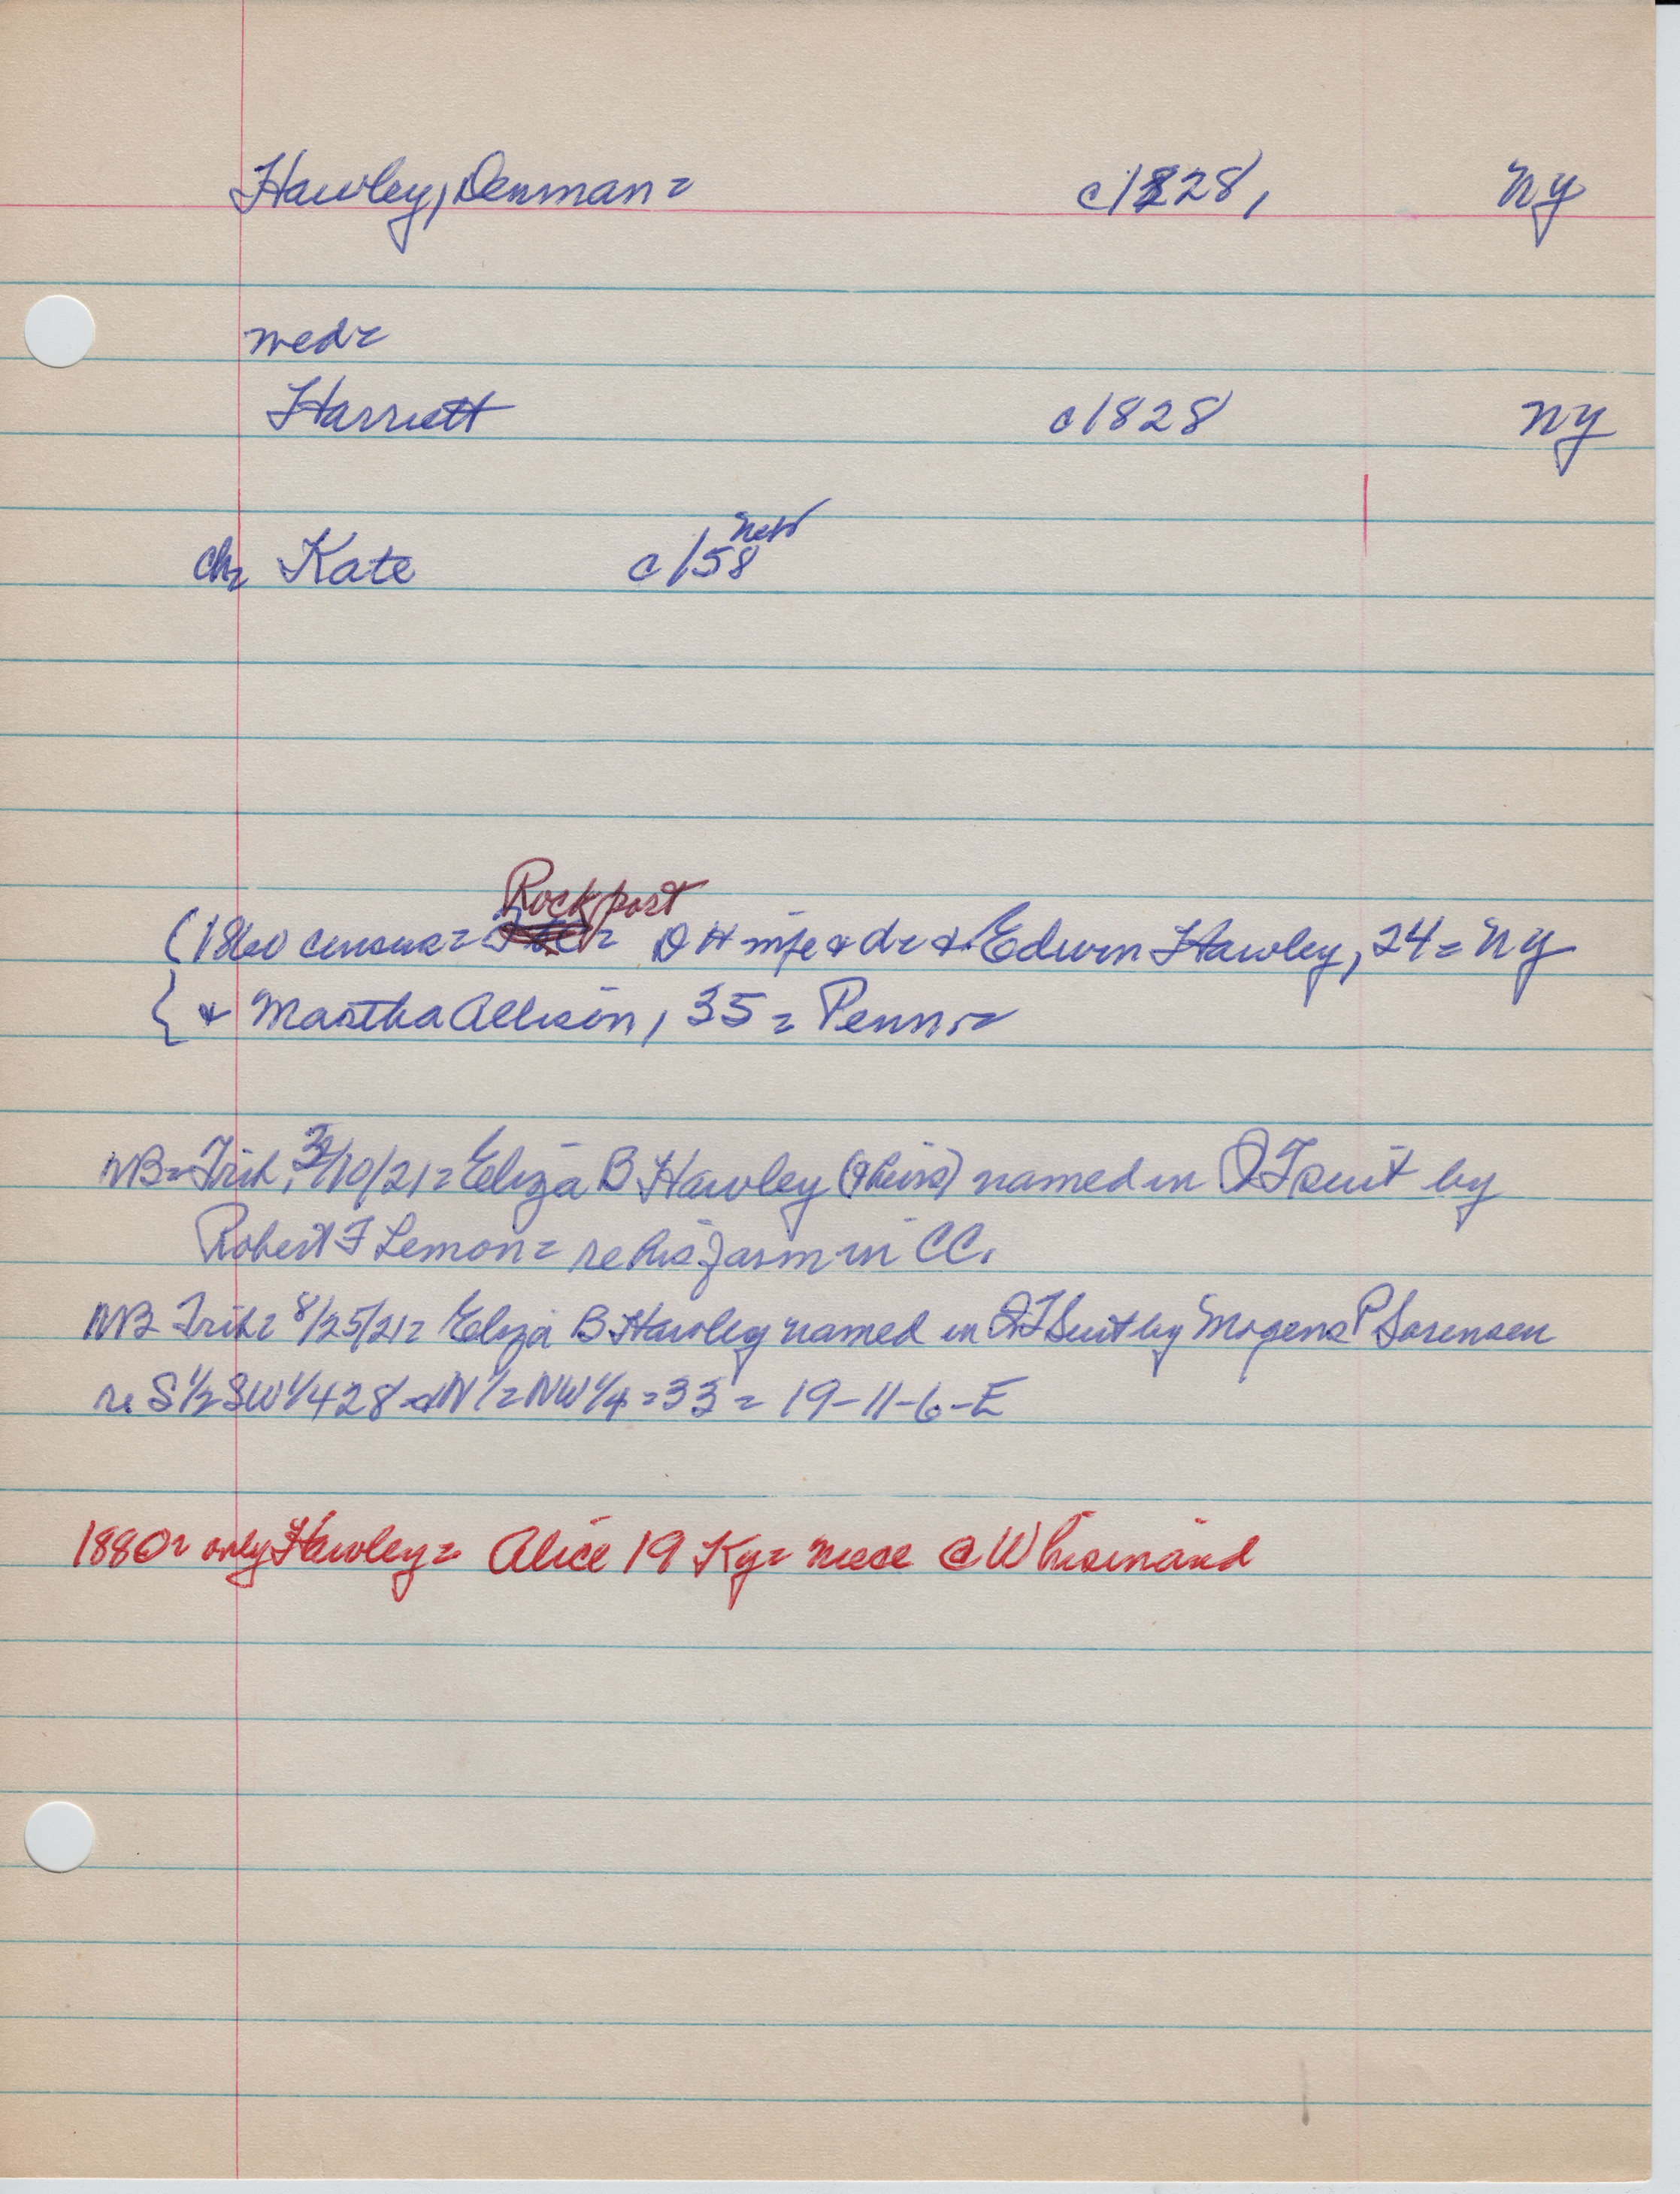 Hawley, Denman = c1828, NY
med =
Harriett c1828 NY
Neb
ch = Kate c/58
Rockport
(1860 census = D H wife & d = & Edwin Hawley, 24 = NY
{ & Martha Allison, 35 = Penn. =
WB = Trib, 3/10/21 = Eliza B Hawley (& heirs) named in QT suit by
Robert F Lemon = re his farm in CC.
WB Trib = 8/25/21 = Eliza B Hawley named in QT Suit by Mogens P Sorensen
re S 1/2 SW 1/4 28 & N 1/2 NW 1/4 = 33 = 19-11-6-E
1880 = only Hawley = Alice 19 Ky = niece @ Whisinand